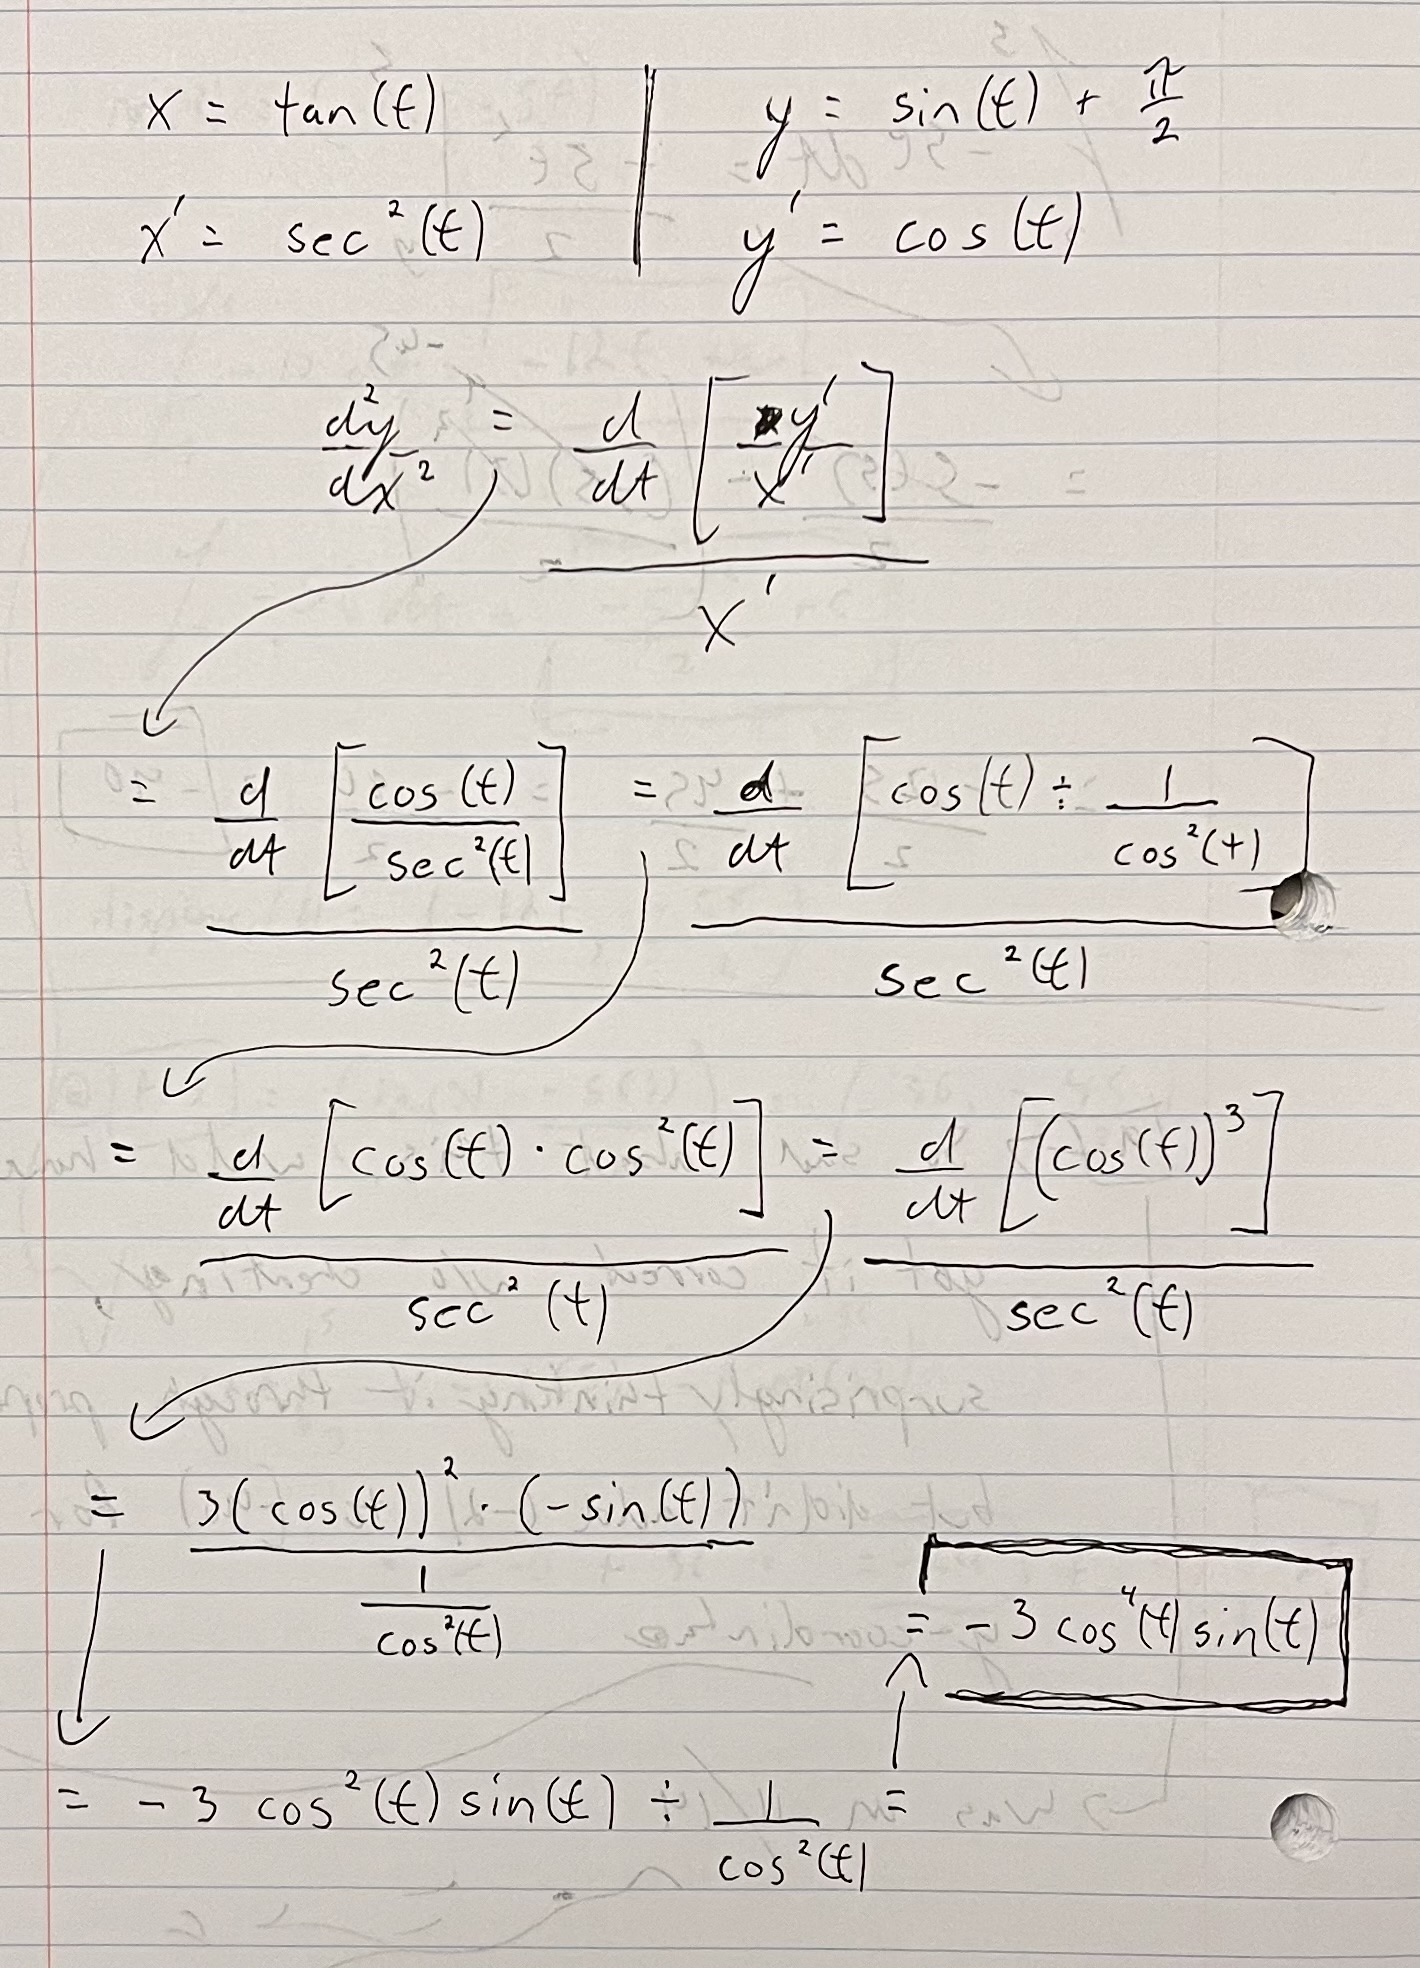 x = tan(t) | y = sin(t) + π/2
x' = sec²(t) | y' = cos(t)
d²y/dx² = d/dt [y'/x'] / x'
= d/dt [cos(t)/sec²(t)] / sec²(t) = d/dt [cos(t) ÷ 1/cos²(t)] / sec²(t)
= d/dt [cos(t) · cos²(t)] / sec²(t) = d/dt [(cos(t))³] / sec²(t)
= 3(cos(t))² · (-sin(t)) / (1/cos²(t))
= -3 cos²(t) sin(t) ÷ 1/cos²(t) =
= -3 cos⁴(t) sin(t)